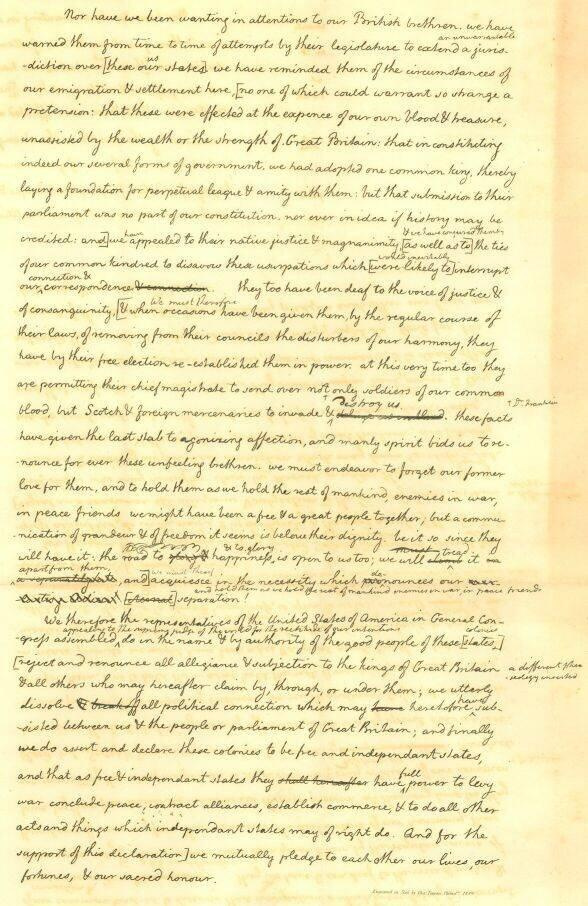 Nor have we been wanting in attentions to our British brethren. we have
an unwarrantable
warned them from time to time of attempts by their legislature to extend a juris-
us
-diction over [these our states]. we have reminded them of the circumstances of
our emigration & settlement here, [no one of which could warrant so strange a
pretension: that these were effected at the expence of our own blood & treasure,
unassisted by the wealth or the strength of Great Britain: that in constituting
indeed our several forms of government, we had adopted one common king, thereby
laying a foundation for perpetual league & amity with them: but that submission to their
parliament was no part of our constitution, nor ever in idea if history may be
have & we have conjured them by
credited: and] we appealed to their native justice & magnanimity [as well as to] the ties
would inevitably
of our common kindred to disavow these usurpations which [were likely to] interrupt
connection &
our correspondence & connection. they too have been deaf to the voice of justice &
We must therefore
of consanguinity, [& when occasions have been given them, by the regular course of
their laws, of removing from their councils the disturbers of our harmony, they
have by their free election re-established them in power. at this very time too they
are permitting their chief magistrate to send over not only soldiers of our common
destroy us. Dr. Franklin
blood, but Scotch & foreign mercenaries to invade & these facts
have given the last stab to agonizing affection, and manly spirit bids us to re-
nounce for ever these unfeeling brethren. we must endeavor to forget our former
love for them, and to hold them as we hold the rest of mankind, enemies in war,
in peace friends we might have been a free & a great people together; but a commu-
-nication of grandeur & of freedom it seems is below their dignity. be it so since they
& to glory must tread
will have it: the road to happiness is open to us too; we will it
apart from them,
and] acquiesce in the necessity which our
and hold them as we hold the rest of mankind enemies in war, in peace friends
[eternal] separation!
We therefore the representatives of the United States of America in General Con-
appealing to the supreme judge of the world for the rectitude of our intentions colonies
-gress assembled, do in the name & by authority of the good people of these [states,]
[reject and renounce all allegiance & subjection to the kings of Great Britain
a different phra-
-seology inserted
& all others who may hereafter claim by, through, or under them; we utterly
have
dissolve & break off all political connection which may have heretofore sub-
-sisted between us & the people or parliament of Great Britain; and finally
we do assert and declare these colonies to be free and independant states,
full
and that as free & independant states they shall hereafter have power to levy
war conclude peace, contract alliances, establish commerce, & to do all other
acts and things which independant states may of right do. And for the
support of this declaration] we mutually pledge to each other our lives, our
fortunes, & our sacred honour.